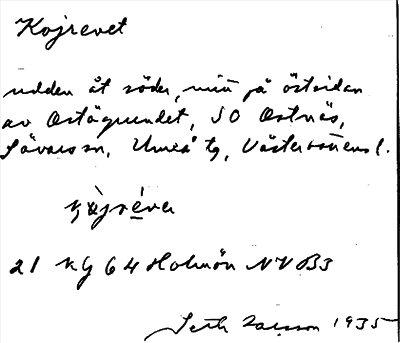 Kojrevet
udden åt söder, mitt på östsidan
av Ostögrundet, SO Ostnäs,
Sävars sn, Umeå tg, Västerbottens l.
21 KG 64 Holmön NV B3
Seth Larsson 1935